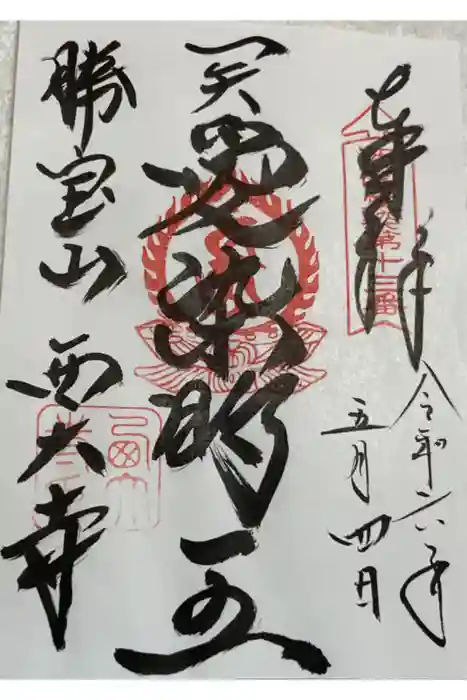 奉拝
第十三番
令和六年
五月四日
愛染明王
勝宝山
西大寺